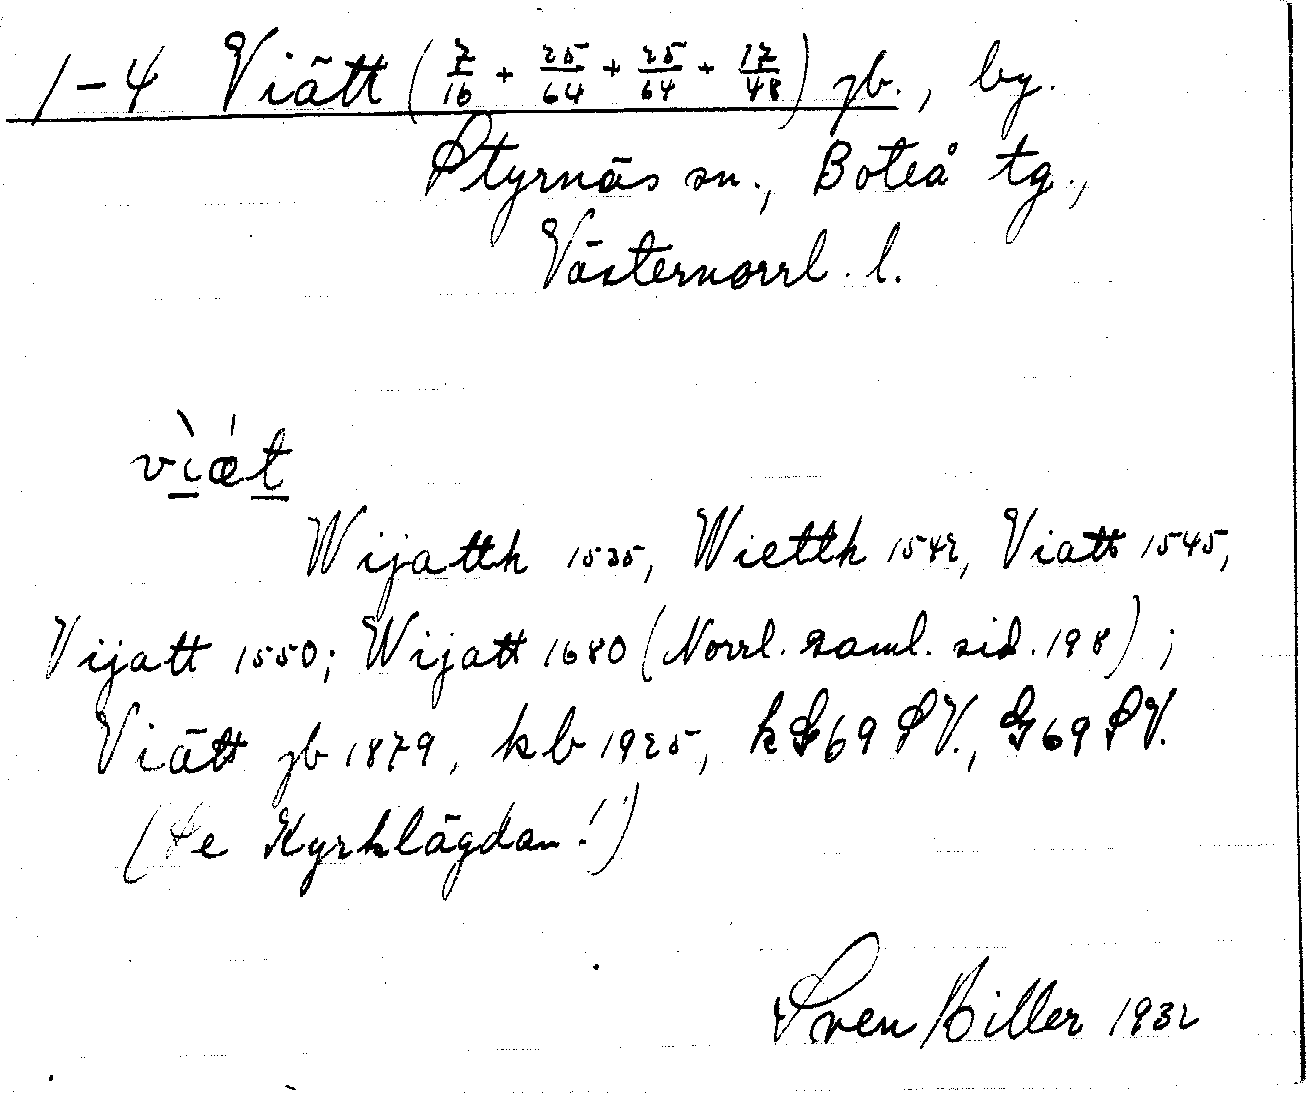 1-4 Viätt (7/16 + 25/64 + 25/64 + 17/48) jb., by.
Styrnäs sn., Boteå tg.,
Västernorrl. l.
vìǽt
Wijattk 1535, Wiettk 1542, Viatt 1545,
Vijatt 1550; Wijatt 1680 (Norrl. saml. sid. 198);
Viätt jb 1879, kb 1925, kG69 SV., G69 SV.
(Se Kyrklägdan!)
Sven Biller 1932